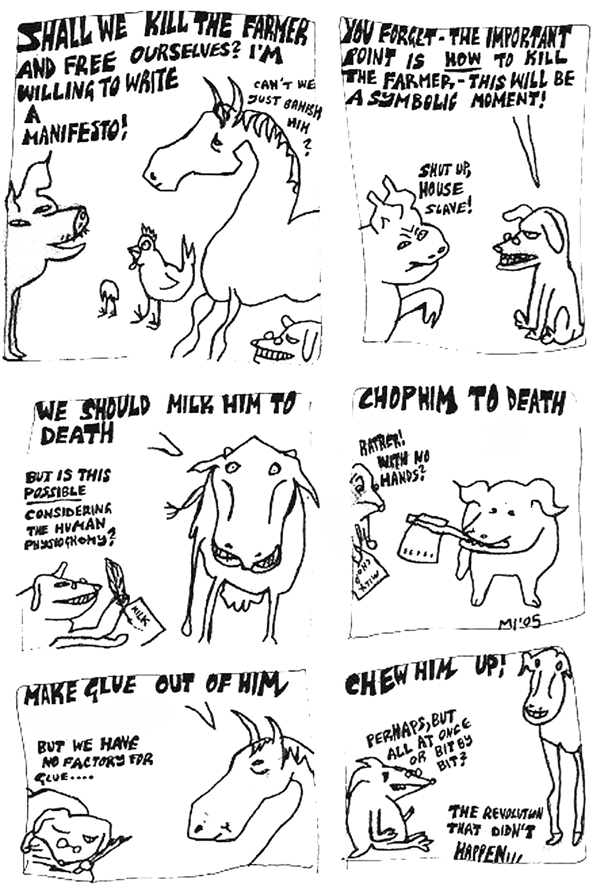 SHALL WE KILL THE FARMER
AND FREE OURSELVES? I'M
WILLING TO WRITE
A
MANIFESTO!
CAN'T WE
JUST BANISH
HIM
?
YOU FORGET - THE IMPORTANT
POINT IS HOW TO KILL
THE FARMER - THIS WILL BE
A SYMBOLIC MOMENT!
SHUT UP,
HOUSE
SLAVE!
WE SHOULD MILK HIM TO
DEATH
BUT IS THIS
POSSIBLE
CONSIDERING
THE HUMAN
PHYSIOGNOMY?
MILK
CHOP HIM TO DEATH
RATHER!
WITH NO
HANDS?
MILK
CHOP
MI'05
MAKE GLUE OUT OF HIM
BUT WE HAVE
NO FACTORY FOR
GLUE....
CHEW HIM UP!
PERHAPS, BUT
ALL AT ONCE
OR BIT BY
BIT?
THE REVOLUTION
THAT DIDN'T
HAPPEN...